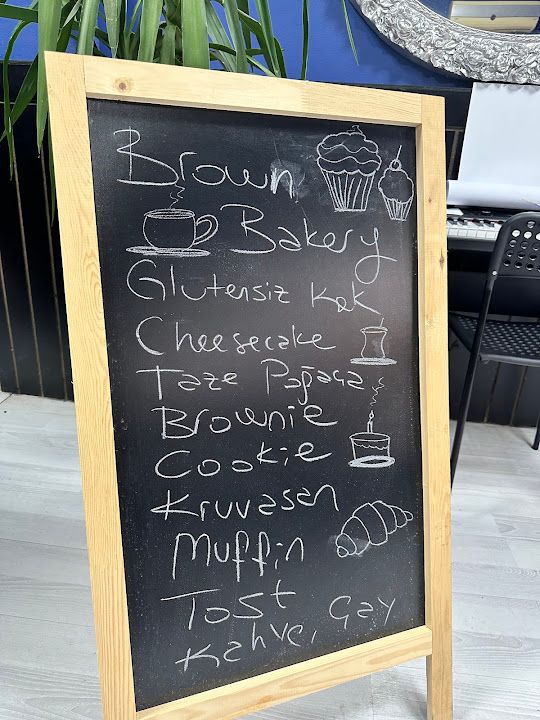 Brown
Bakery
Glutensiz Kek
Cheesecake
Taze Poğaça
Brownie
Cookie
Kruvasan
Muffin
Tost
Kahve, Çay